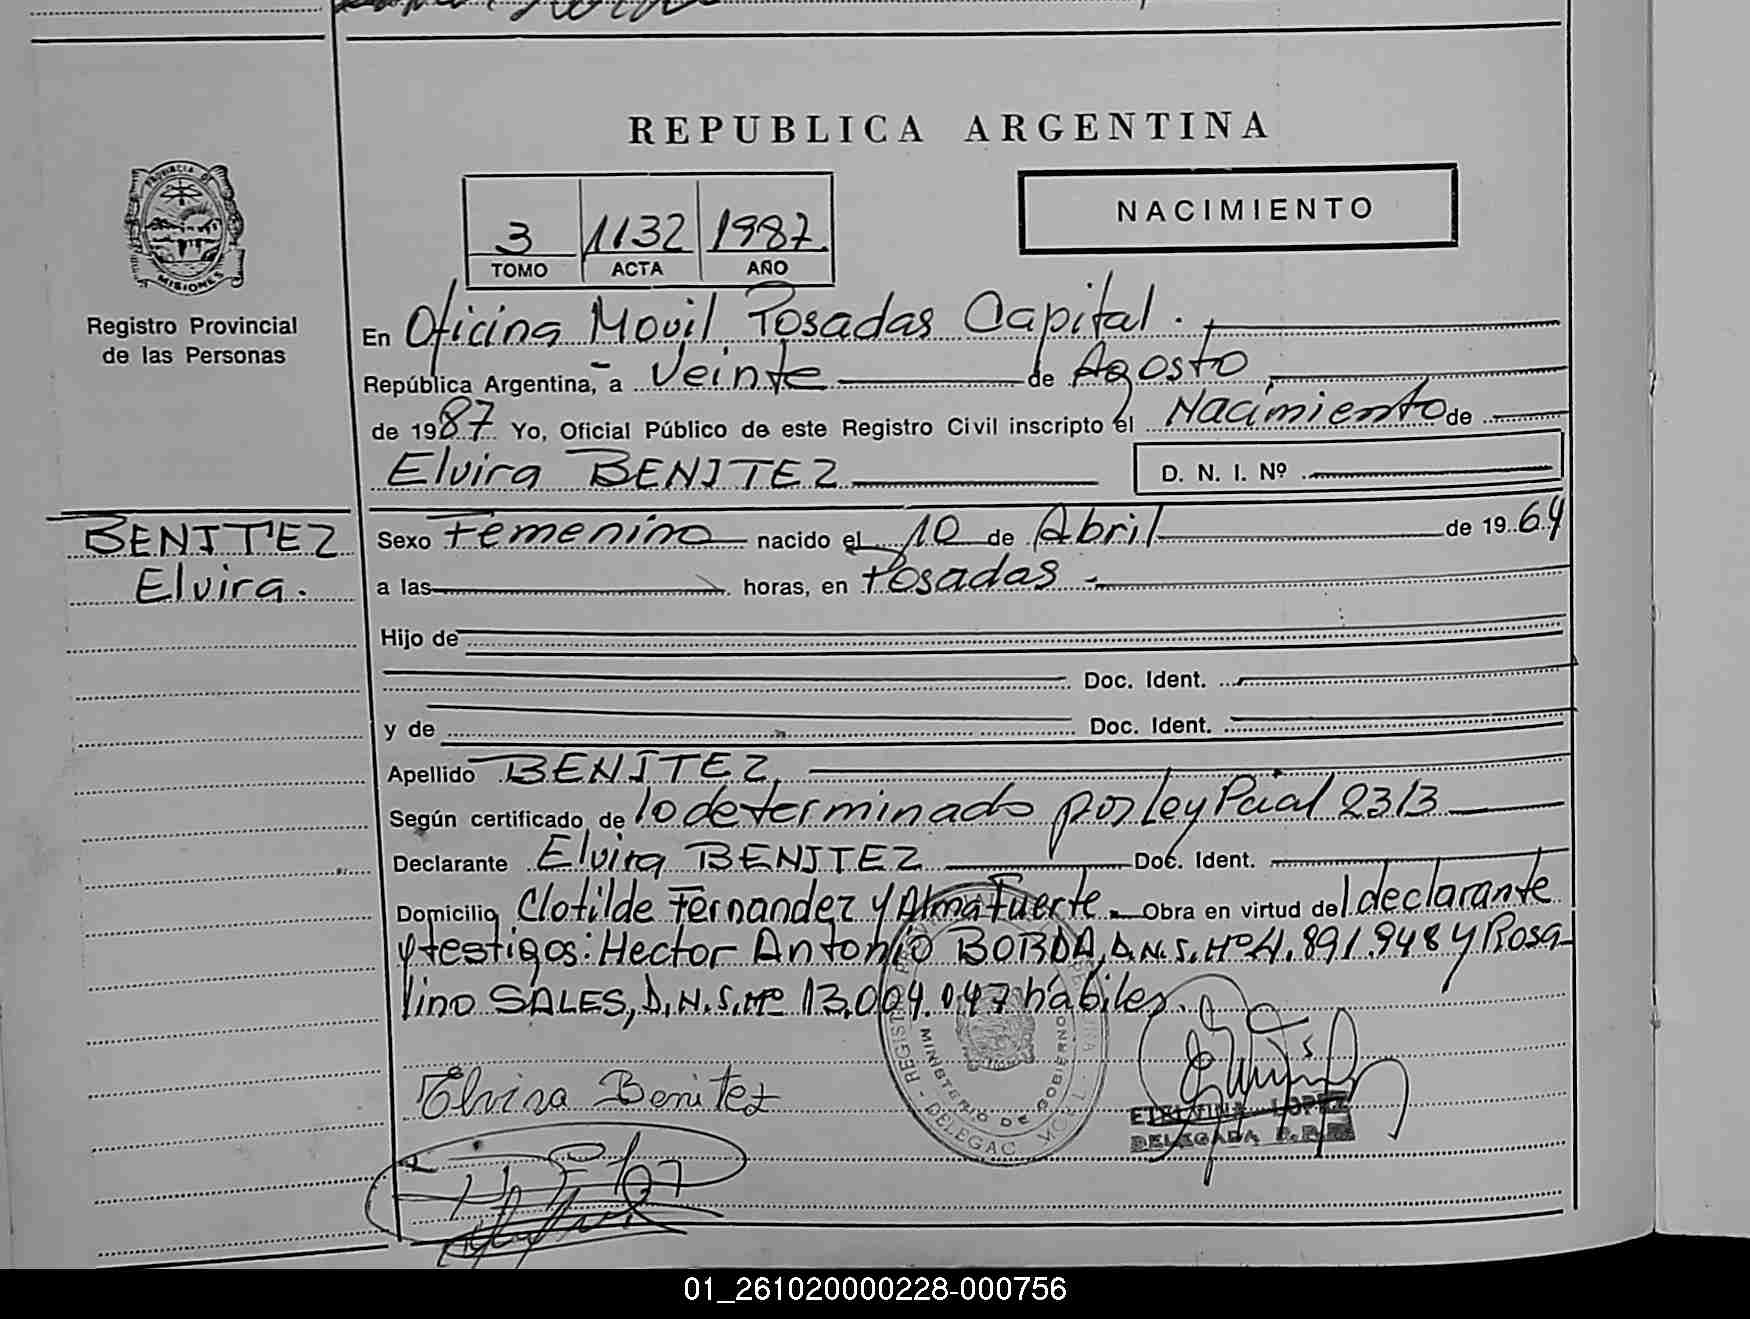 REPUBLICA ARGENTINA
PROVINCIA DE
MISIONES
Registro Provincial
de las Personas
3 1132 1987
TOMO ACTA AÑO
NACIMIENTO
En Oficina Movil Posadas Capital.
República Argentina, a Veinte de Agosto
de 1987 Yo, Oficial Público de este Registro Civil inscripto el Nacimiento de
Elvira BENITEZ D. N. I. Nº
BENITEZ
Elvira.
Sexo Femenino nacido el 10 de Abril de 1964
a las horas, en Posadas
Hijo de
Doc. Ident.
y de Doc. Ident.
Apellido BENITEZ,
Según certificado de lo determinado por Ley Pcial 2313
Declarante Elvira BENITEZ Doc. Ident.
Domicilio Clotilde Fernandez y Alma Fuerte. Obra en virtud del declarante
y testigos: Hector Antonio BORDA, D.N.I. Nº 4.891.948 y Rosa-
lino SALES, D.N.I. Nº 13.004.047 hábiles.
MINISTERIO DE GOBIERNO
Elvira Benitez
LOPEZ
DELEGADA
01_261020000228-000756